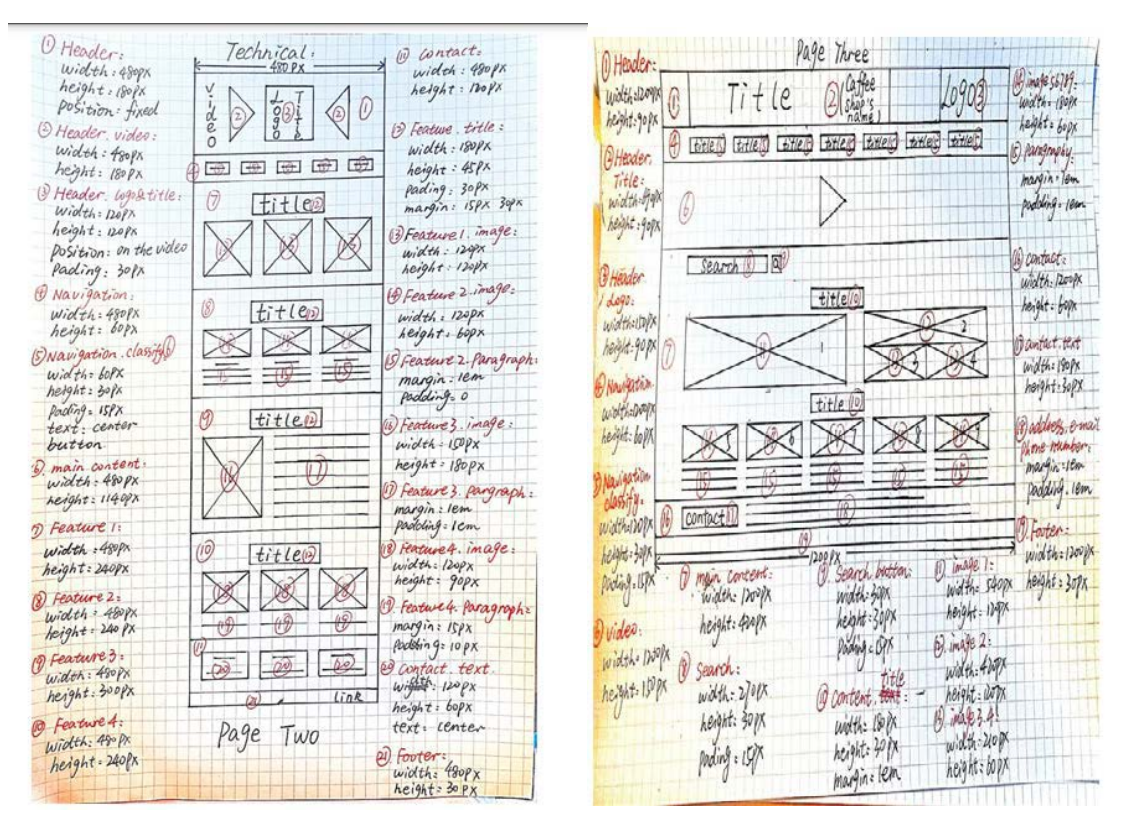 Technical:
480px
① Header:
width: 480px
height: 180px
position: fixed
② Header. video:
width: 480px
height: 180px
③ Header. logo&title:
width: 120px
height: 120px
position: on the video
Pading: 30px
④ Navigation:
width: 480px
height: 60px
⑤ Navigation. classify
width: 60px
height: 30px
Pading: 15px
text: center
button
⑥ main content.
width: 480px
height: 1140px
⑦ Feature 1:
width: 480px
height: 240px
⑧ Feature 2:
width: 480px
height: 240px
⑨ Feature 3:
width: 480px
height: 300px
⑩ Feature 4:
width: 480px
height: 240px
video
②
Logo
③
Title
②
①
④
⑦
title ⑫
⑧
title ⑫
⑮ ⑮ ⑮
⑨
title ⑫
⑯ ⑰
⑩
title ⑫
⑱ ⑱ ⑱
⑲ ⑲ ⑲
⑪
⑳ ⑳ ⑳
link
Page Two
⑪ contact:
width: 480px
height: 120px
Feature. title:
width: 180px
height: 45px
pading: 30px
margin: 15px 30px
⑬ Feature1. image:
width: 120px
height: 120px
⑭ Feature 2. image:
width: 120px
height: 60px
⑮ Feature 2. Paragraph:
margin: 1em
padding: 0
⑯ Feature3. image:
width: 150px
height: 180px
⑰ Feature 3. pargraph:
margin: 1em
Padding: 1em
⑱ Feature4. image:
width: 120px
height: 90px
⑲ Feature4. Paragraph:
margin: 15px
padding: 10px
⑳ contact. text.
width: 120px
height: 60px
text: center
㉑ Footer:
width: 480px
height: 30px
Page Three
① Header:
width: 1200px
height: 90px
② Header.
Title:
height: 90px
③ Header
Logo:
height: 90px
④ Navigation
width: 1200px
height: 60px
⑤ Navigation
classify:
width: 120px
height: 30px
Pading: 15px
⑥ video:
width: 1200px
height: 150px
①
Title
②
(Coffee
shop's
name)
Logo ③
④
title⑤ title⑤ title⑤ title⑤ title⑤ title⑤ title⑤
⑥
Search ⑧ ⑨
title⑩
⑦
⑪ 1
⑫ 2
⑬ 3
⑬ 4
title ⑩
⑭ 5 ⑭ 6 ⑭ 7 ⑭ 8 ⑭ 9
⑮ ⑮ ⑮ ⑮ ⑮
⑯
contact ⑰
⑱
⑲
1200px
⑦ main content:
width: 1200px
height: 420px
⑧ Search:
width: 270px
height: 30px
Pading: 15px
⑨ Search button:
width: 30px
height: 30px
Pading: 15px
⑩ Content. title
width: 180px
height: 30px
margin: 1em
⑪ image 1:
width: 540px
⑫ image 2:
width: 420px
height: 120px
⑬ image 3.4:
width: 210px
height: 60px
width: 180px
height: 60px
margin: 1em
padding: 1em
⑯ contact:
width: 1200px
height: 60px
contact. text
width: 180px
height: 30px
⑱ address. e-mail
phone-number:
margin: 1em
Padding: 1em
⑲ Footer:
width: 1200px
height: 30px